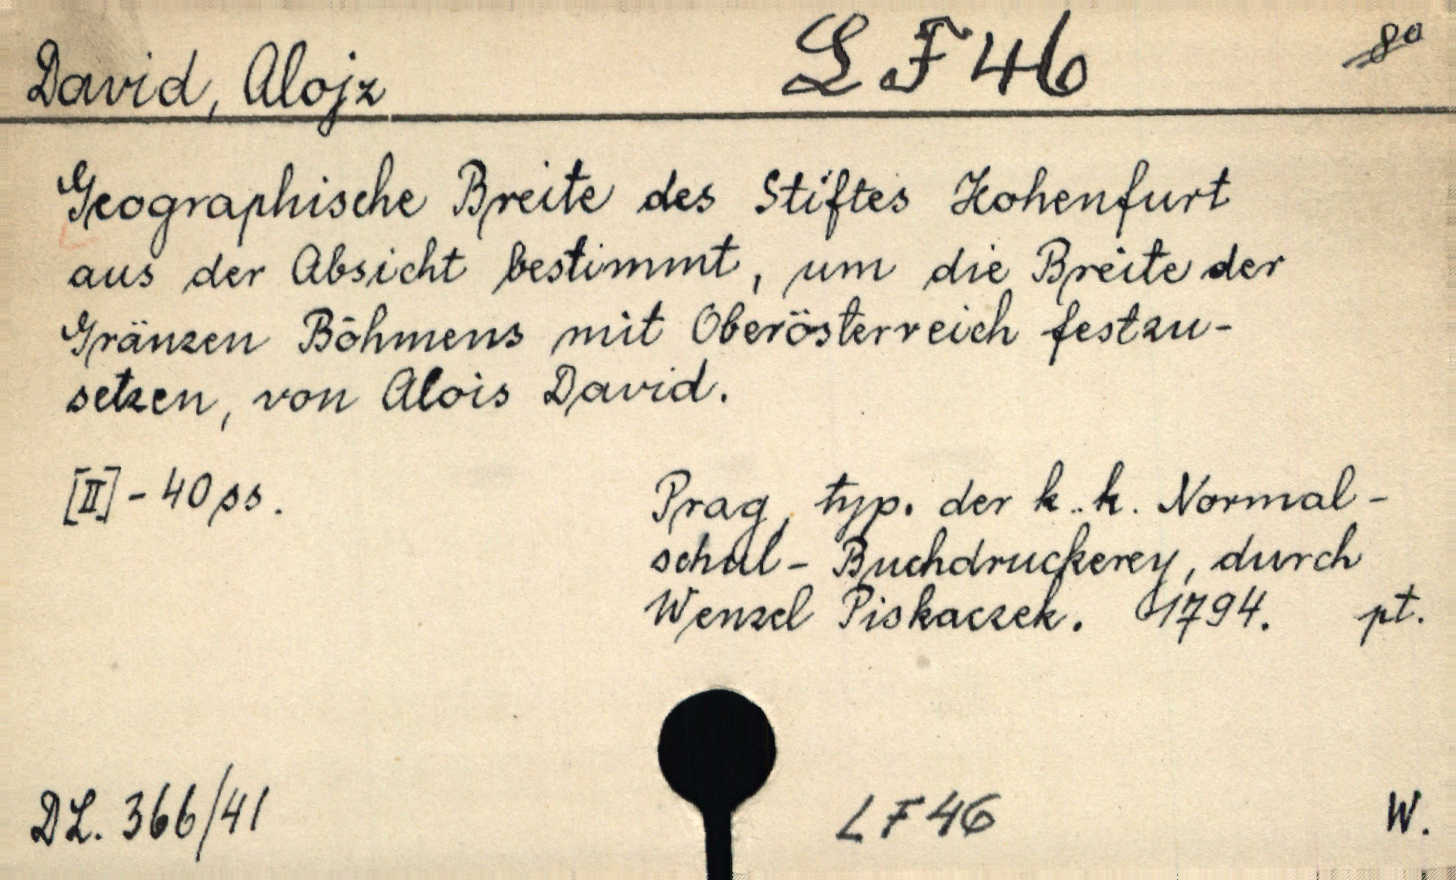 David, Alojz
LF 46
8°
Geographische Breite des Stiftes Hohenfurt
aus der Absicht bestimmt, um die Breite der
Gränzen Böhmens mit Oberösterreich festzu-
setzen, von Alois David.
[II] - 40 ss.
Prag, typ. der k. k. Normal-
schul- Buchdruckerey, durch
Wenzel Piskaczek. 1794. pt.
DL. 366/41
LF 46
W.